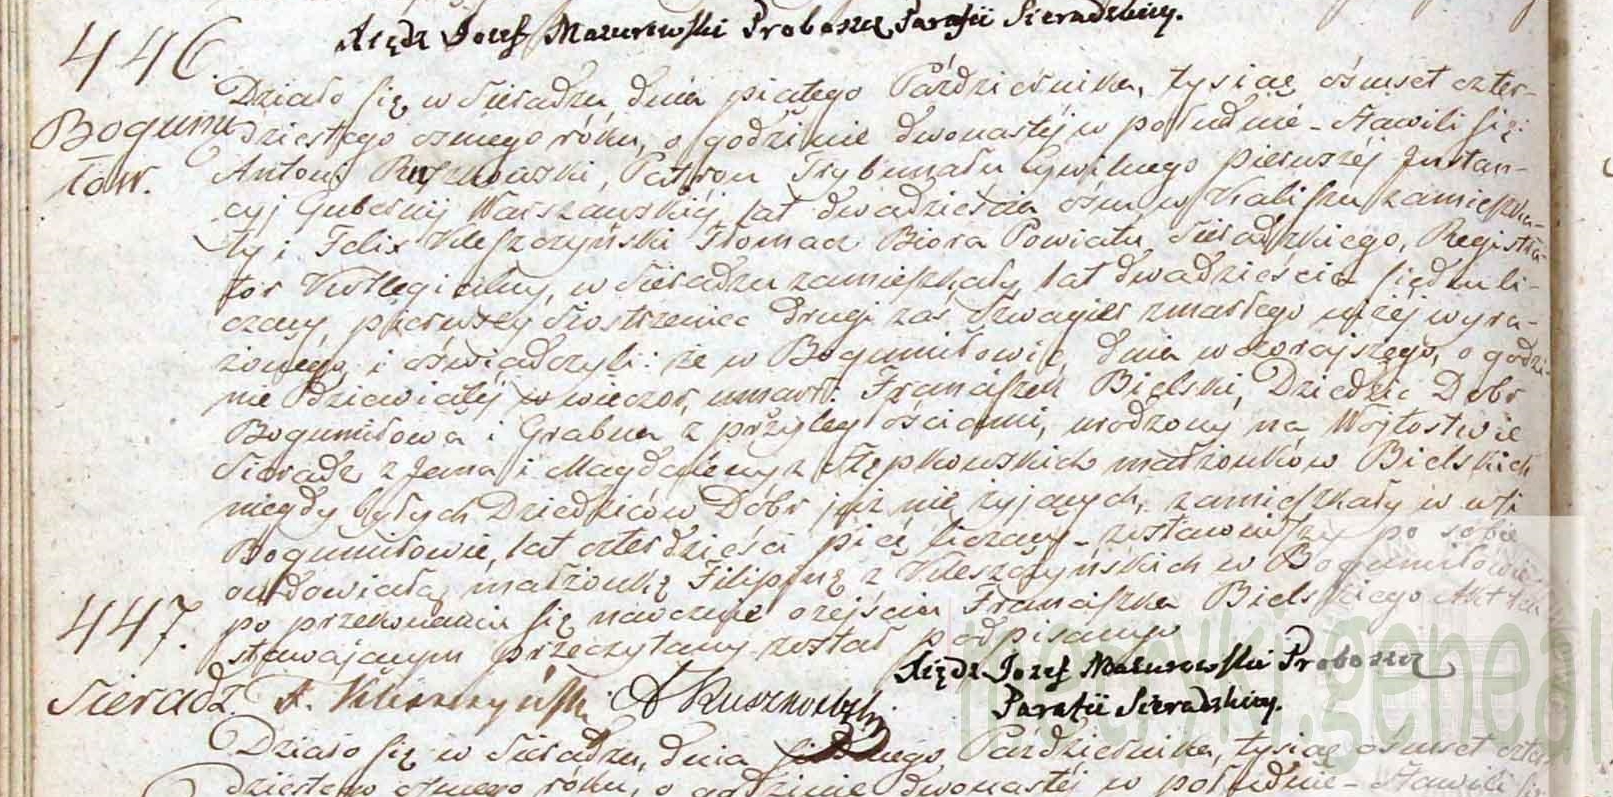 Xiądz Jozef Mazurowski Proboszcz Parafii Sieradzkiey.
446.
Bogumi
łow.
Działo się w Sieradzu dnia piątego Października, tysiąc ośmset czter-
dziestego osmego róku, o godzinie dwunastéj w południe - Stawili się:
Antoni Ruszkowski, Patron Trybunału Cywilnego pierwszéj Instan-
cyj Gubernij Warszawskiéj, lat dwadzieścia ośm, w Kaliszu zamieszka-
ły i Felix Kleszczyński Tłomacz Biora Powiatu Sieradzkiego, Registra-
tor Kollegialny, w Sieradzu zamieszkały, lat dwadzieścia siedm li-
czący, pierwszy Siostrzeniec drugi zaś Szwagier zmarłego niżéj wyra-
żonego, i oświadczyli: że w Bogumiłowie, dnia wczorajszego, o godzi-
nie dziewiątéj w wieczor, umarł: Franciszek Bielski, Dziedzic Dobr
Bogumiłowa i Grabna z przyległościami, urodzony na Wójtostwie
Sieradz z Jana i Magdaleny z Stępkowskich małżonków Bielskich
niegdy byłych Dziedziców Dóbr już nie żyjących, zamieszkały w wsi
Bogumiłowie, lat czterdzieści pięć liczący - zostawiwszy po sobie
owdowiałą małżonkę Filipinę z Kleszczyńskich w Bogumiłowie
po przekonaniu się naocznie o zejściu Franciszka Bielskiego Akt ten
stawającym przeczytany został podpisany
Xiądz Jozef Mazurowski Proboszcz
Parafii Sieradzkiey.
F. Kleszczyński A Ruszkowski
447.
Sieradz.
Działo się w Sieradzu, dnia Października, tysiąc ośmset czter
dziestego osmego róku, o godzinie dwunastéj w południe - Stawili się
metryki.geneal